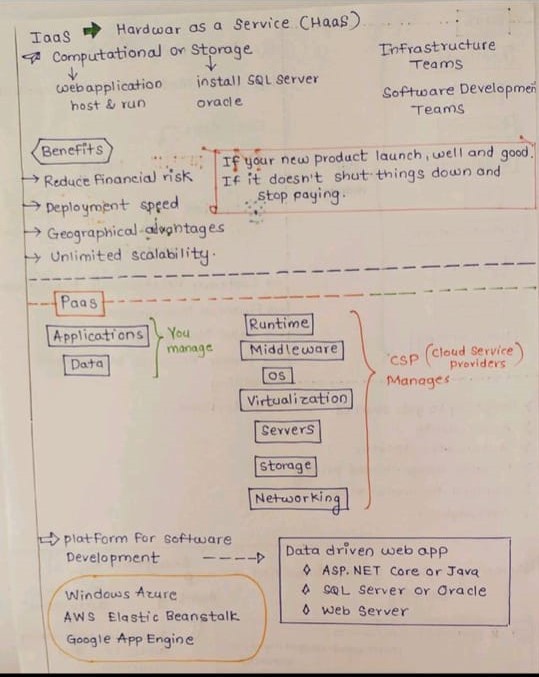 IaaS → Hardwar as a Service (HaaS)
Computational or Storage
webapplication
host & run
install SQL Server
oracle
Infrastructure
Teams
Software Developmen
Teams
Benefits
→ Reduce Financial risk
→ Deployment speed
→ Geographical advantages
→ Unlimited scalability.
If your new product launch, well and good.
If it doesn't shut things down and
stop paying.
Paas
Applications
Data
You
manage
Runtime
Middleware
OS
Virtualization
Servers
Storage
Networking
CSP (Cloud Service
providers)
Manages
⇒ platform for software
Development
Data driven web app
◊ ASP.NET Core or Java
◊ SQL Server or Oracle
◊ Web Server
Windows Azure
AWS Elastic Beanstalk
Google App Engine